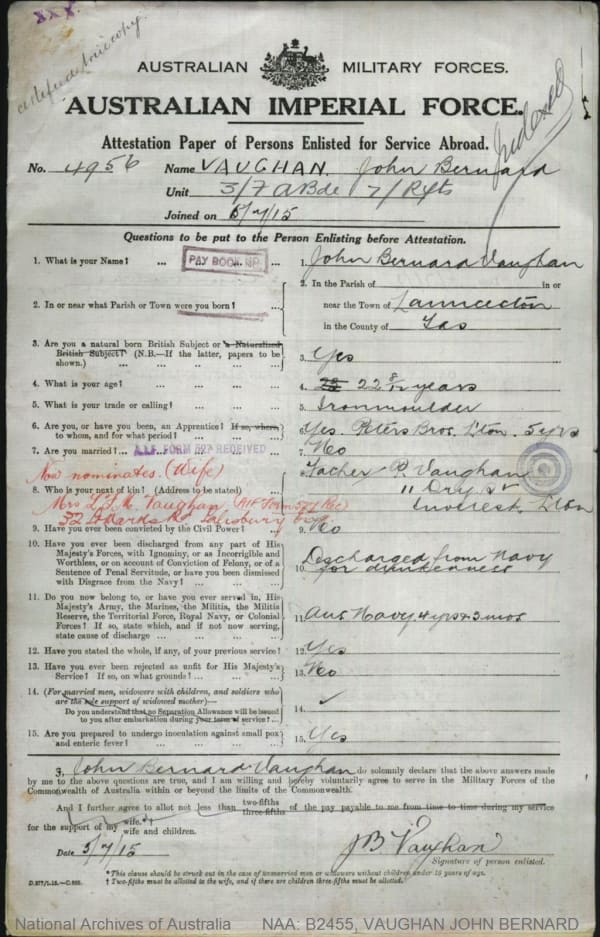 XXX.
certified true copy
AUSTRALIAN MILITARY FORCES.
AUSTRALIAN IMPERIAL FORCE.
Indexed
Attestation Paper of Persons Enlisted for Service Abroad.
No. 4956 Name VAUGHAN. John Bernard
Unit 3/7 A Bde 7/Rfts
Joined on 5/7/15
Questions to be put to the Person Enlisting before Attestation.
1. What is your Name? ... ... PAY BOOK 1. John Bernard Vaughan
2. In or near what Parish or Town were you born? ... 2. In the Parish of in or
near the Town of Launceston
in the County of Tas
3. Are you a natural born British Subject or a Naturalized
British Subject? (N.B.—If the latter, papers to be
shown.) ... ... ... ... 3. Yes
4. What is your age? ... ... ... ... 4. 22 8/12 years
5. What is your trade or calling? ... ... ... 5. Ironmoulder
6. Are you, or have you been, an Apprentice? If so, where,
to whom, and for what period? ... ... ... 6. Yes. Peters Bros. Lton. 5 yrs
7. Are you married? ... A.I.F. FORM 527 RECEIVED 7. No
Now nominates. (Wife)
8. Who is your next of kin? (Address to be stated) ... 8. Father P. Vaughan
11 Dry St
Inveresk. Lton
Mrs L. F. M. Vaughan (AIF Form 527 Rec)
32 St Marks Rd Salisbury
9. Have you ever been convicted by the Civil Power? 9. No
10. Have you ever been discharged from any part of His
Majesty's Forces, with Ignominy, or as Incorrigible and
Worthless, or on account of Conviction of Felony, or of a
Sentence of Penal Servitude, or have you been dismissed
with Disgrace from the Navy? ... ... ... 10. Discharged from Navy
for drunkenness
11. Do you now belong to, or have you ever served in, His
Majesty's Army, the Marines, the Militia, the Militia
Reserve, the Territorial Force, Royal Navy, or Colonial
Forces? If so, state which, and if not now serving,
state cause of discharge ... ... ... ... 11. Aus Navy. 4 yrs & 3 mos
12. Have you stated the whole, if any, of your previous service? 12. Yes
13. Have you ever been rejected as unfit for His Majesty's
Service? If so, on what grounds? ... ... 13. No
14. (For married men, widowers with children, and soldiers who
are the sole support of widowed mother)—
Do you understand that no Separation Allowance will be issued
to you after embarkation during your term of service? ... 14. ✓
15. Are you prepared to undergo inoculation against small pox
and enteric fever? ... ... ... ... 15. Yes
I, John Bernard Vaughan do solemnly declare that the above answers made
by me to the above questions are true, and I am willing and hereby voluntarily agree to serve in the Military Forces of the
Commonwealth of Australia within or beyond the limits of the Commonwealth.
And I further agree to allot not less than two-fifths three-fifths of the pay payable to me from time to time during my service
for the support of my wife.† wife and children.
Date 5/7/15 J B Vaughan
Signature of person enlisted.
* This clause should be struck out in the case of unmarried men or widowers without children under 18 years of age.
† Two-fifths must be allotted to the wife, and if there are children three-fifths must be allotted.
National Archives of Australia NAA: B2455, VAUGHAN JOHN BERNARD